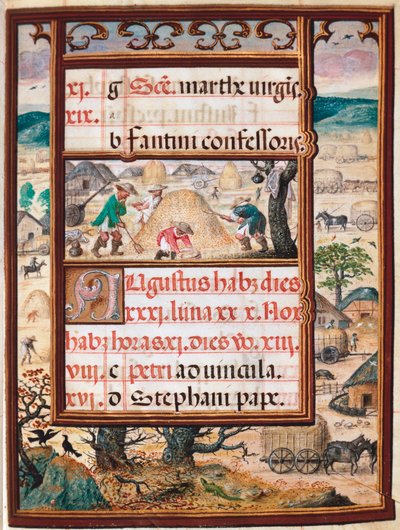 xj. g Scē. marthe virgīs.
xix. a
b Fantini confessoris.
AUgustus habz dies
xxxj. luna xx x. Nox
habz horas xj. dies vo. xiii.
viii. c petri ad uincula.
xvj. d Stephani pape.